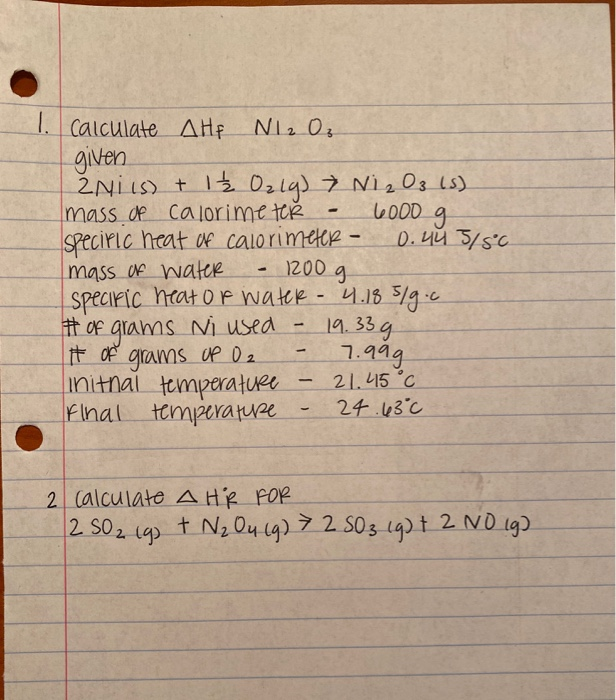 1. Calculate ΔHf Ni₂O₃
given
2Ni(s) + 1½ O₂(g) → Ni₂O₃(s)
mass of calorimeter - 6000 g
specific heat of calorimeter - 0.44 J/g°C
mass of water - 1200 g
specific heat of water - 4.18 J/g·c
# of grams Ni used - 19.33g
# of grams of O₂ - 7.99g
initnal temperature - 21.45°C
Final temperature - 24.63°C
2 Calculate ΔH°R FOR
2 SO₂(g) + N₂O₄(g) → 2 SO₃(g) + 2 NO(g)